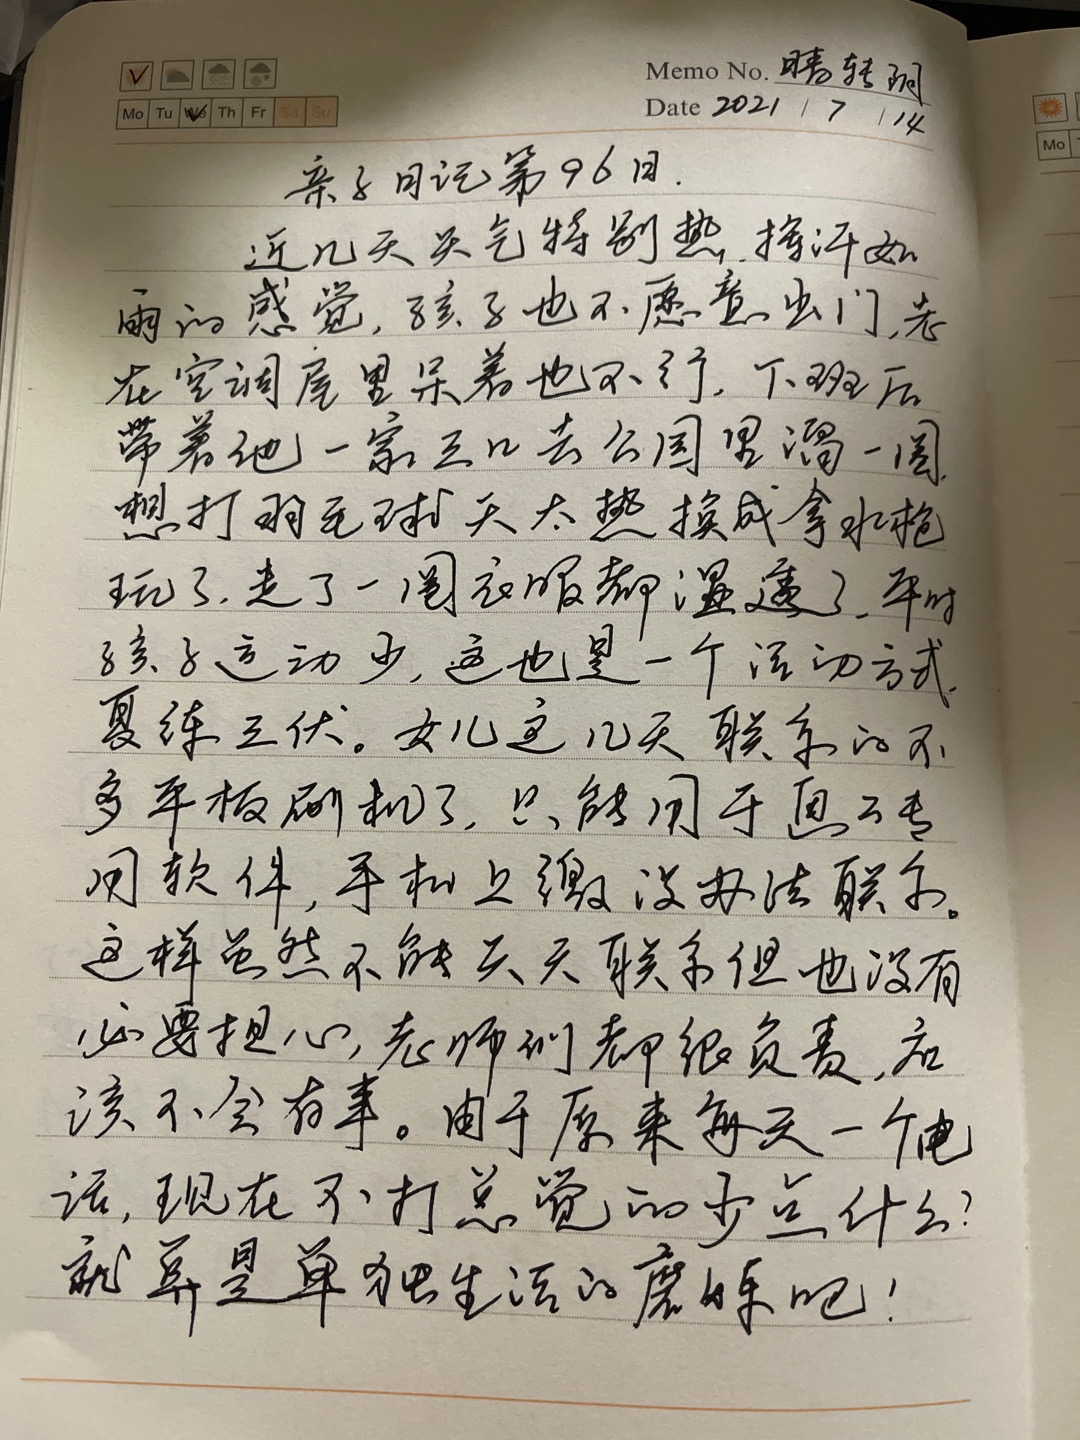 Memo No. 晴转阴
Mo Tu We Th Fr Sa Su
Date 2021 / 7 / 14
亲子日记第96日.
近几天天气特别热.挥汗如
雨的感觉,孩子也不愿意出门,老
在空调屋里呆着也不行.下班后
带着他一家三口去公园里溜一圈,
想打羽毛球天太热换成拿水枪
玩了.走了一圈衣服都湿透了.平时
孩子运动少,这也是一个活动方式.
夏练三伏。女儿这几天联系的不
多平板刷机了,只能用于专
用软件,手机上缴没办法联系。
这样虽然不能天天联系但也没有
必要担心,老师们都很负责,应
该不会有事。由于原来每天一个电
话,现在不打总觉的少点什么?
就算是单独生活的磨练吧!
Mo